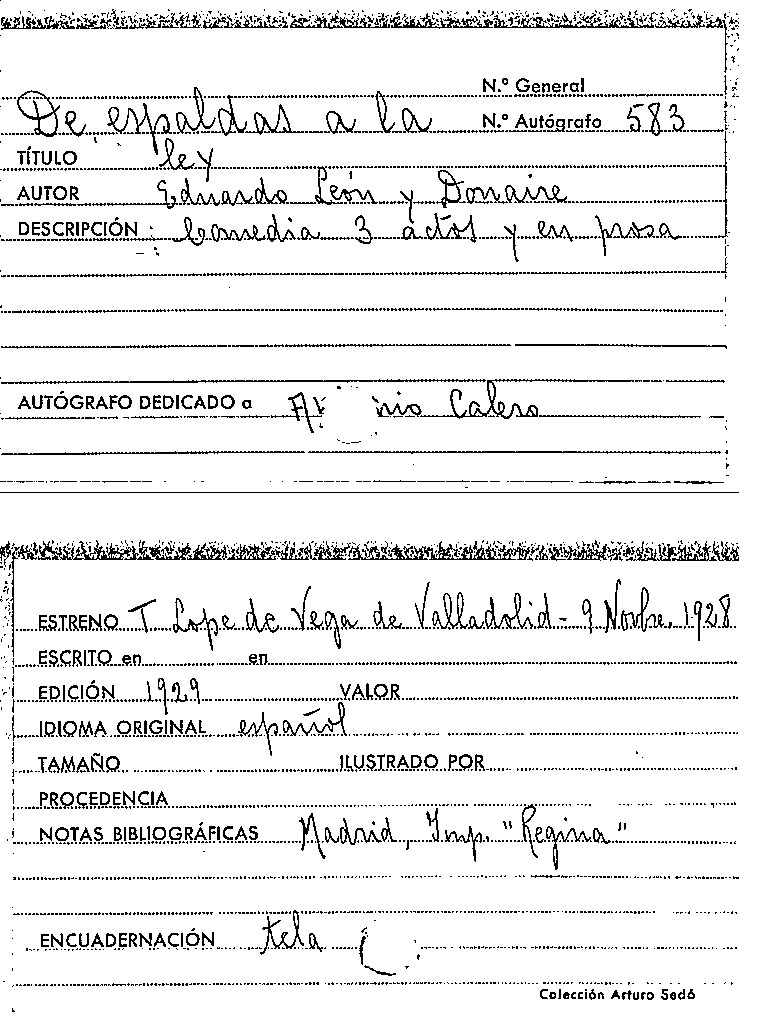 N.º General
De espaldas a la N.º Autógrafo 583
TÍTULO ley
AUTOR Eduardo León y Donaire
DESCRIPCIÓN : Comedia 3 actos y en prosa
AUTÓGRAFO DEDICADO a Calero
ESTRENO T. Lope de Vega de Valladolid - 9 Novbre. 1928
ESCRITO en en
EDICIÓN 1929 VALOR
IDIOMA ORIGINAL español
TAMAÑO ILUSTRADO POR
PROCEDENCIA
NOTAS BIBLIOGRÁFICAS Madrid, Imp. "Regina"
ENCUADERNACIÓN tela
Colección Arturo Sedó